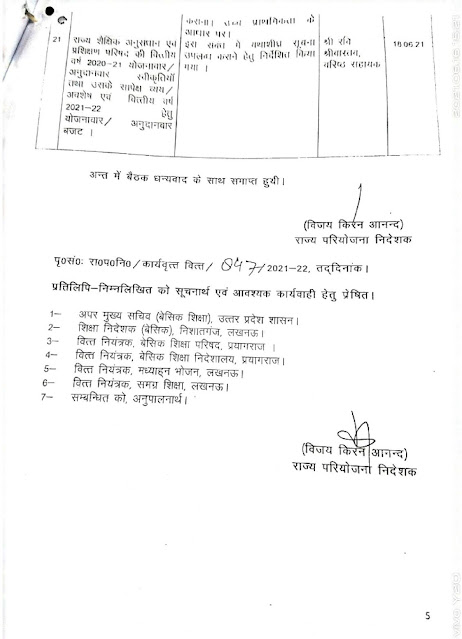 कराना। उच्च प्राथमिकता के
आधार पर।
21 राज्य शैक्षिक अनुसंधान एवं प्रशिक्षण परिषद की वित्तीय वर्ष 2020-21 योजनावार/ अनुदानवार स्वीकृतियाँ तथा उसके सापेक्ष व्यय/ अवशेष एवं वित्तीय वर्ष 2021-22 हेतु योजनावार/ अनुदानवार बजट ।
इस सम्बन्ध में यथाशीघ्र सूचना
उपलब्ध कराने हेतु निर्देशित किया
गया ।
श्री रवि
श्रीवास्तव,
वरिष्ठ सहायक
18.06.21
अन्त में बैठक धन्यवाद के साथ समाप्त हुयी।
(विजय किरन आनन्द)
राज्य परियोजना निदेशक
पृ०सं०: रा०प०नि०/कार्यवृत्त वित्त/ 847/2021-22, तद्दिनांक।
प्रतिलिपि-निम्नलिखित को सूचनार्थ एवं आवश्यक कार्यवाही हेतु प्रेषित।
1- अपर मुख्य सचिव (बेसिक शिक्षा), उत्तर प्रदेश शासन।
2- शिक्षा निदेशक (बेसिक), निशातगंज, लखनऊ।
3- वित्त नियंत्रक, बेसिक शिक्षा परिषद, प्रयागराज ।
4- वित्त नियंत्रक, बेसिक शिक्षा निदेशालय, प्रयागराज।
5- वित्त नियंत्रक, मध्याह्न भोजन, लखनऊ।
6- वित्त नियंत्रक, समग्र शिक्षा, लखनऊ।
7- सम्बन्धित को, अनुपालनार्थ।
(विजय किरन आनन्द)
राज्य परियोजना निदेशक
5